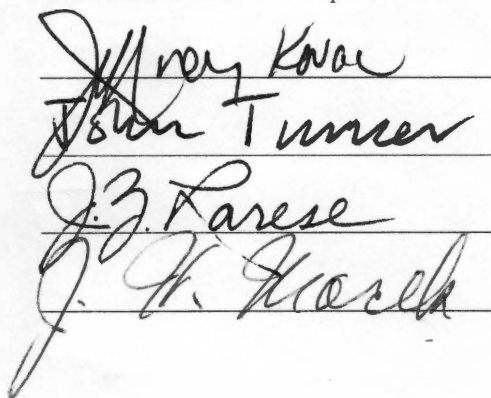 Jeffrey Kovac
John Turner
J. Z. Larese
J. W.